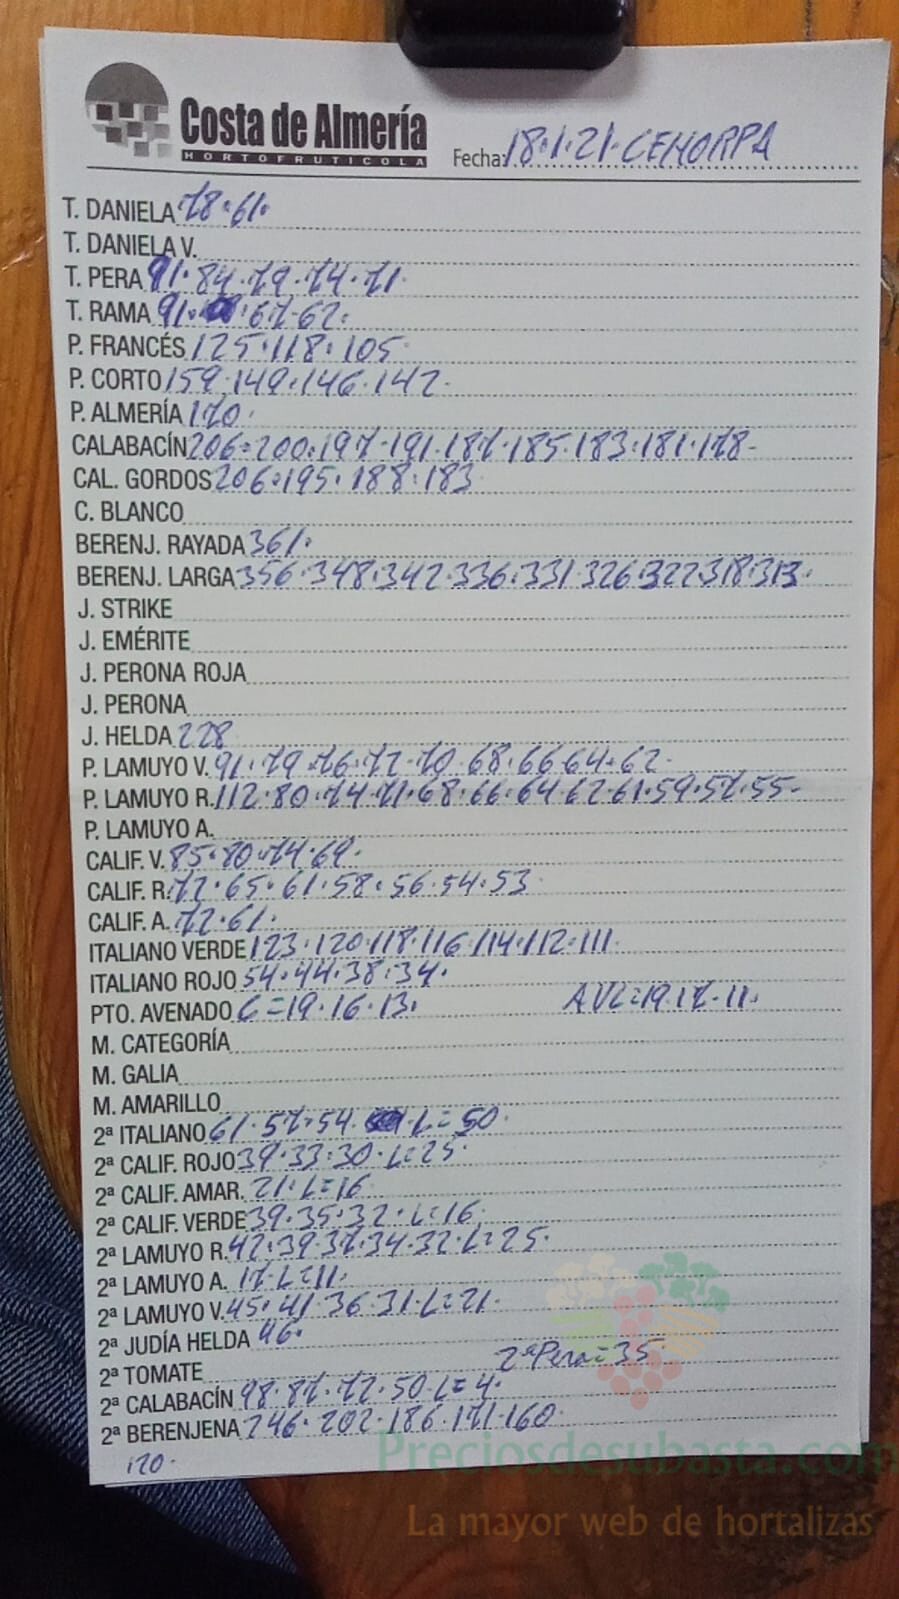 Costa de Almería
HORTOFRUTICOLA
Fecha: 18.1.21. CEHORPA
T. DANIELA 78.61.
T. DANIELA V.
T. PERA 91.84.79.74.71.
T. RAMA 91. 67-62.
P. FRANCÉS 125.118.105
P. CORTO 159.149.146.142.
P. ALMERÍA 170.
CALABACÍN 206=200.197-191.187.185.183.181.178-
CAL. GORDOS 206.195.188.183
C. BLANCO
BERENJ. RAYADA 361.
BERENJ. LARGA 356.348.342.336.331.326.322.318.313.
J. STRIKE
J. EMÉRITE
J. PERONA ROJA
J. PERONA
J. HELDA 228
P. LAMUYO V. 91.79.76.72-70.68.66.64.62.
P. LAMUYO R. 112.80.74.71.68.66.64.62.61.59.57.55-
P. LAMUYO A.
CALIF. V. 85.80.74.69.
CALIF. R. 72.65.61.58.56.54.53
CALIF. A. 72.61.
ITALIANO VERDE 123.120.118.116.114.112.111.
ITALIANO ROJO 54.44.38.34.
PTO. AVENADO C=19.16.13. AVL=19.17.11.
M. CATEGORÍA
M. GALIA
M. AMARILLO
2ª ITALIANO 61.57.54. L=50.
2ª CALIF. ROJO 39.33.30.L=25.
2ª CALIF. AMAR. 21.L=16
2ª CALIF. VERDE 39.35.32.L=16.
2ª LAMUYO R. 42.39.37.34.32.L=25.
2ª LAMUYO A. 17.L=11.
2ª LAMUYO V. 45.41.36.31.L=21.
2ª JUDÍA HELDA 46.
2ª TOMATE 2ª Pera=35
2ª CALABACÍN 98.87.72.50.L=4.
2ª BERENJENA 246.202.186.171.160.
120.
Preciosdesubasta.com
La mayor web de hortalizas